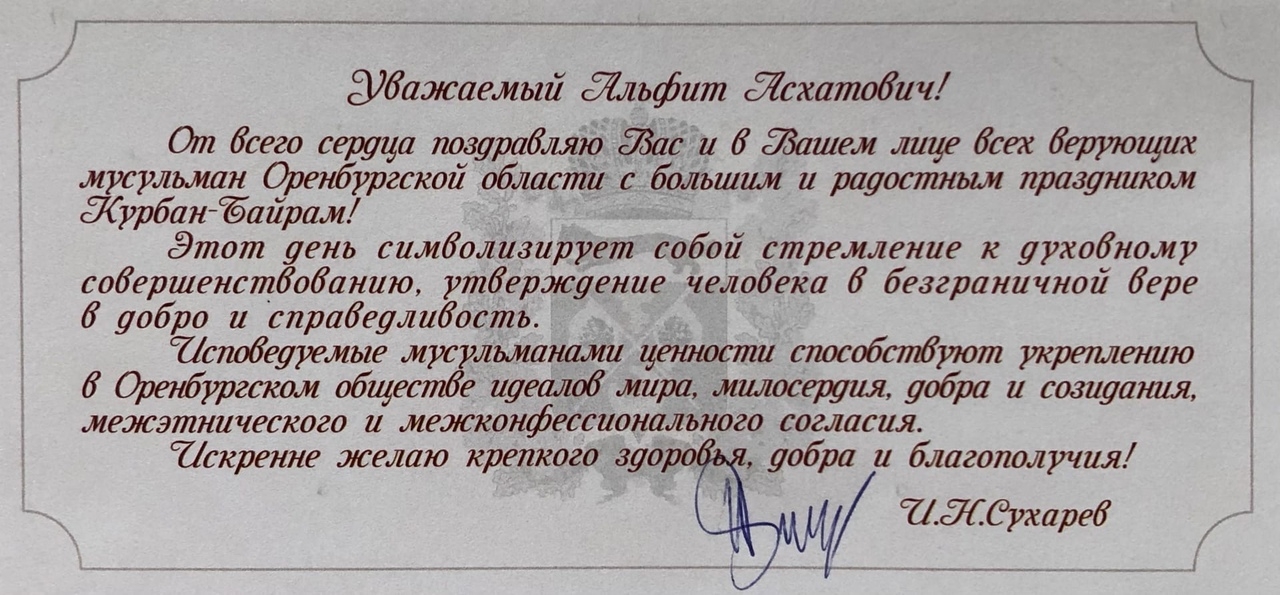 Уважаемый Альфит Асхатович!
От всего сердца поздравляю Вас и в Вашем лице всех верующих
мусульман Оренбургской области с большим и радостным праздником
Курбан-Байрам!
Этот день символизирует собой стремление к духовному
совершенствованию, утверждение человека в безграничной вере
в добро и справедливость.
Исповедуемые мусульманами ценности способствуют укреплению
в Оренбургском обществе идеалов мира, милосердия, добра и созидания,
межэтнического и межконфессионального согласия.
Искренне желаю крепкого здоровья, добра и благополучия!
И.Н.Сухарев